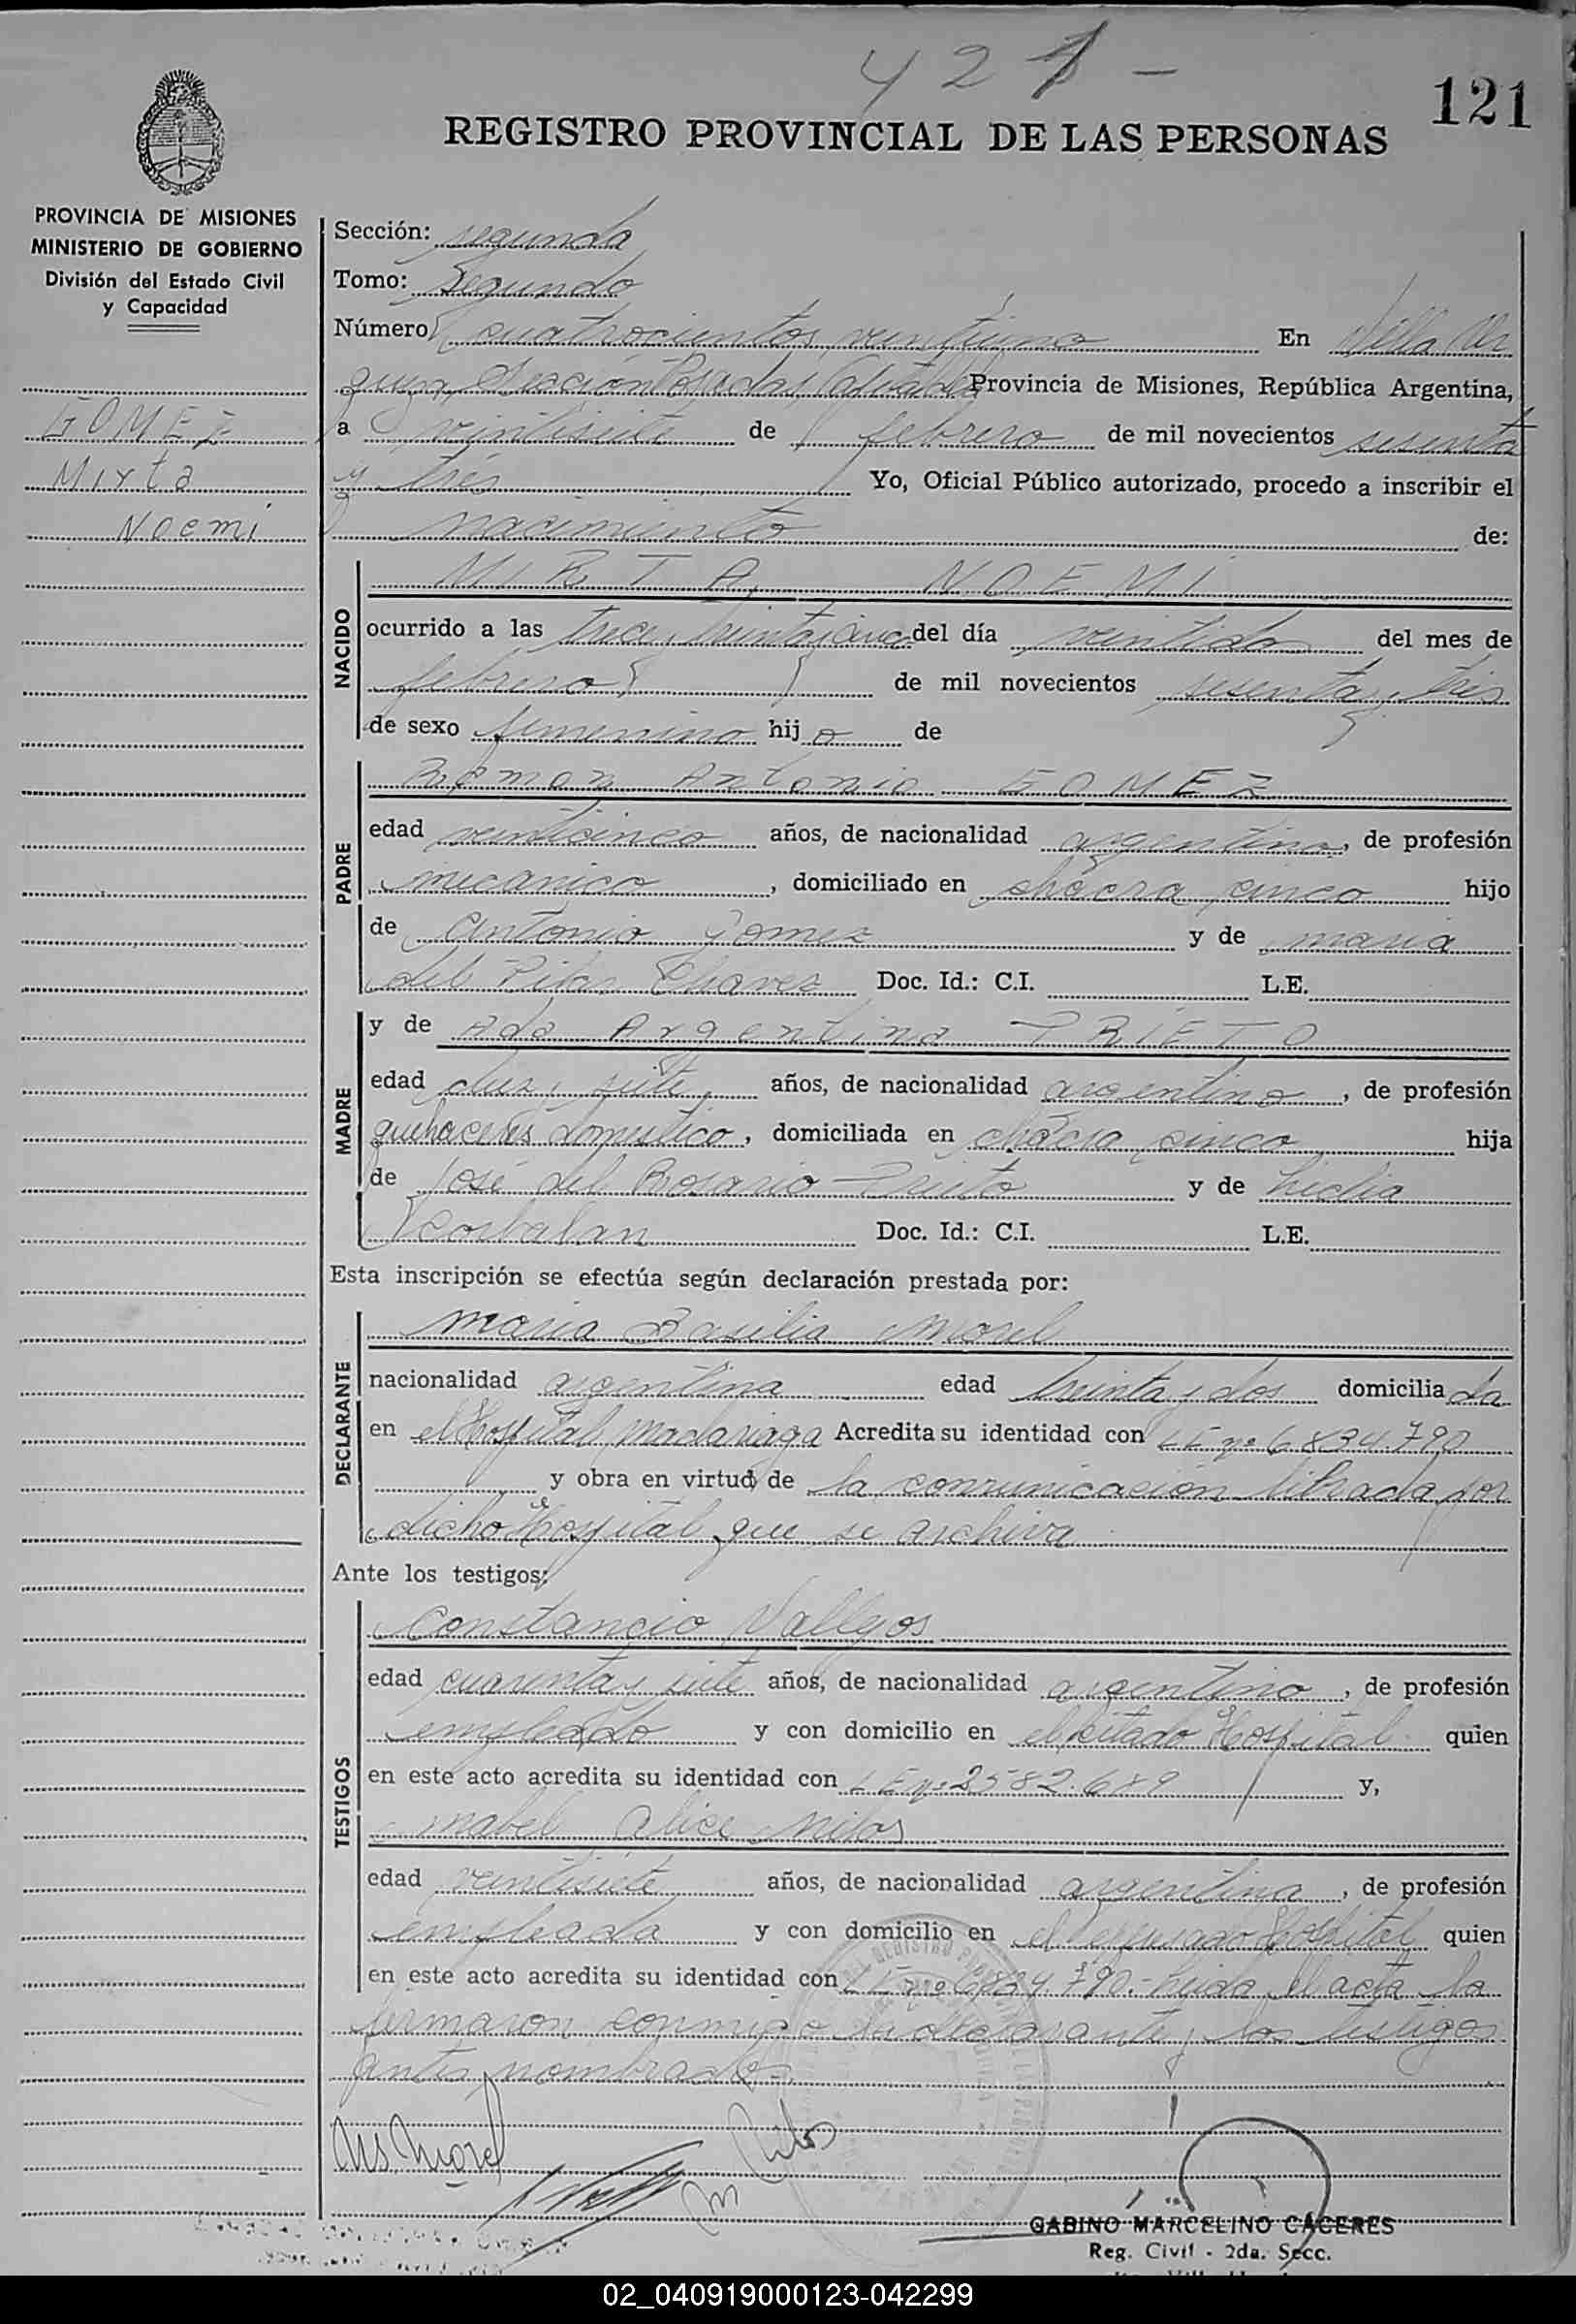 421 -
121
REGISTRO PROVINCIAL DE LAS PERSONAS
PROVINCIA DE MISIONES
MINISTERIO DE GOBIERNO
División del Estado Civil
y Capacidad
GOMEZ
Mirta
Noemi
Sección: segunda
Tomo: Segundo
Número cuatrocientos veintiuno En Villa Ur
quiza, Sección Posadas, Capital de Provincia de Misiones, República Argentina,
a vintisiete de febrero de mil novecientos sesenta
y tres Yo, Oficial Público autorizado, procedo a inscribir el
nacimiento de:
NACIDO
MIRTA NOEMI
ocurrido a las trece y treinta y cinco del día veintidos del mes de
febrero de mil novecientos sesenta y tres
de sexo femenino hij a de
PADRE
Ramon Antonio GOMEZ
edad veinticinco años, de nacionalidad argentina, de profesión
mecanico, domiciliado en chacra cinco hijo
de Antonio Gomez y de maria
del Pilar Chavez Doc. Id.: C.I. L.E.
MADRE
y de Ada Argentina PRIETO
edad diez y siete años, de nacionalidad argentina, de profesión
quehaceres domestico, domiciliada en chacra cinco hija
de José del Rosario Prieto y de Lidia
Corbalan Doc. Id.: C.I. L.E.
Esta inscripción se efectúa según declaración prestada por:
DECLARANTE
Maria Basilia Morel
nacionalidad argentina edad treinta y dos domicilia da
en el Hospital Madariaga Acredita su identidad con LE nº 6834.790
y obra en virtud de la comunicacion librada por
dicho Hospital que se archiva
Ante los testigos:
TESTIGOS
Constancio Vallejos
edad cuarenta y siete años, de nacionalidad argentino, de profesión
empleado y con domicilio en el citado Hospital quien
en este acto acredita su identidad con LE nº 2582.689 y,
Mabel Alice Milos
edad veintisiete años, de nacionalidad argentina, de profesión
empleada y con domicilio en el expresado Hospital quien
en este acto acredita su identidad con LE nº 6834.790.- Leida el acta la
firmaron conmigo la declarante y los testigos
antes nombrados
Morel
GABINO MARCELINO CACERES
Reg. Civil - 2da. Secc.
02_040919000123-042299